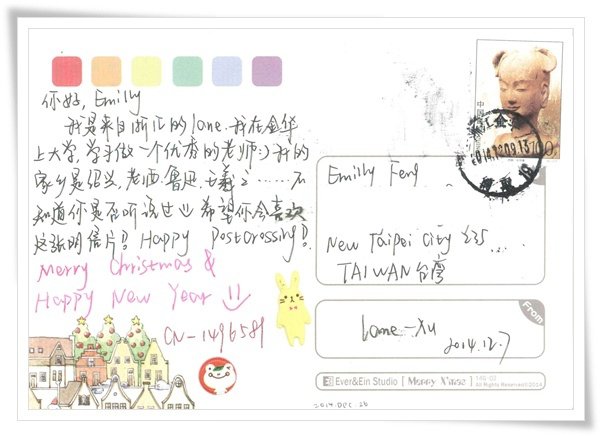 你好, Emilly
我是来自浙江的lane.我在金华
上大学,学习做一个优秀的老师:)我的
家乡是绍兴,老酒.鲁迅.王羲之……不
知道你是否听说过 希望你会喜欢
这张明信片!! Happy Postcrossing!!
Merry Christmas &
Happy New Year
CN-1496581
2014.12.09.13
100
Emilly Feng
New Taipei City
TAIWAN 台湾
From
lane-Xu
2014.12.7
Ever&Ein Studio [Merry X'mas] 14G-07
All Rights Reserved©2014
2014 DEC. 26